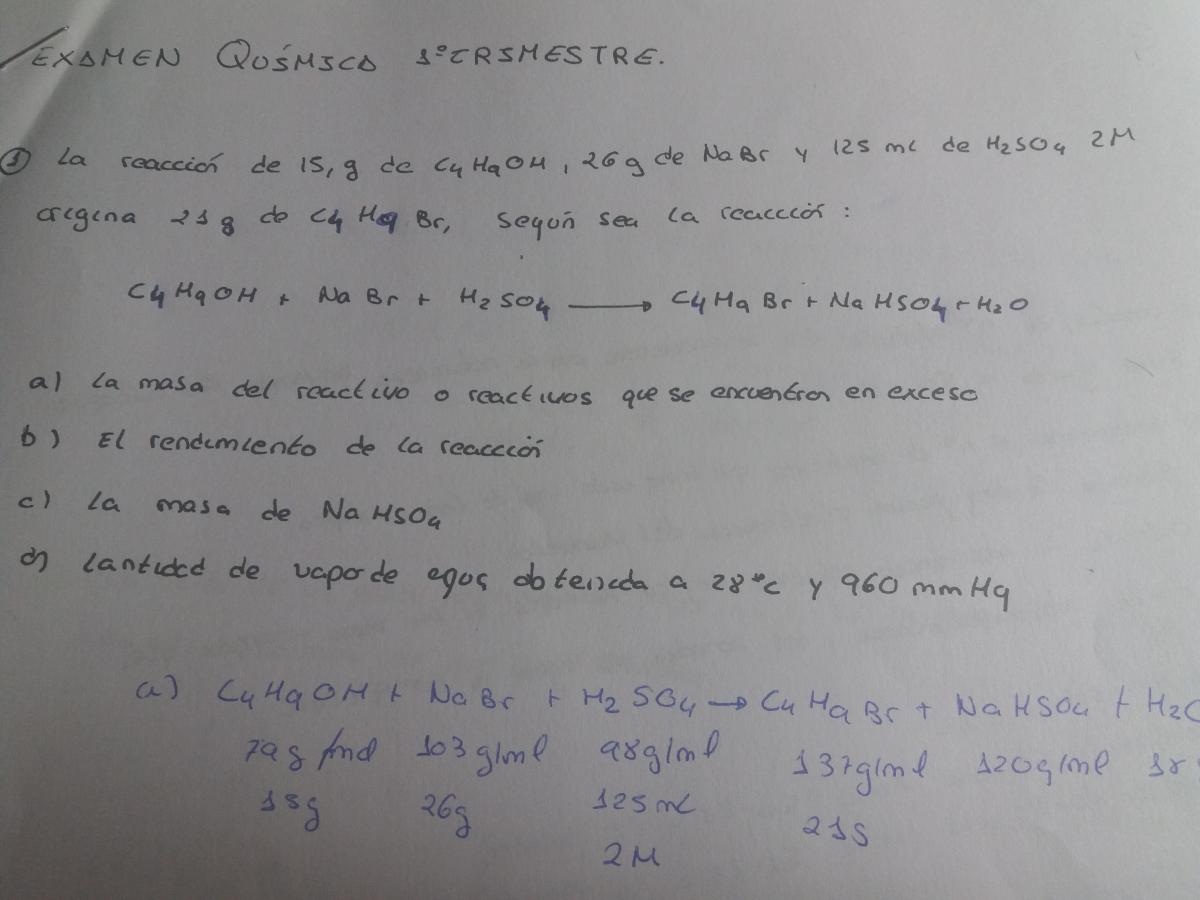 EXAMEN QUÍMICA 1º TRIMESTRE.
① La reacción de 15, g de C4H9OH, 26 g de NaBr y 125 mL de H2SO4 2M
origina 21 g de C4H9Br, según sea la reacción:
C4H9OH + NaBr + H2SO4 ⟶ C4H9Br + NaHSO4 + H2O
a) La masa del reactivo o reactivos que se encuentran en exceso
b) El rendimiento de la reacción
c) La masa de NaHSO4
d) Cantidad de vapor de agua obtenida a 28ºC y 960 mmHg
a) C4H9OH + NaBr + H2SO4 → C4H9Br + NaHSO4 + H2O
74g/mol 103g/mol 98g/mol 137g/mol 120g/mol 18
15g 26g 125mL 21g
2M